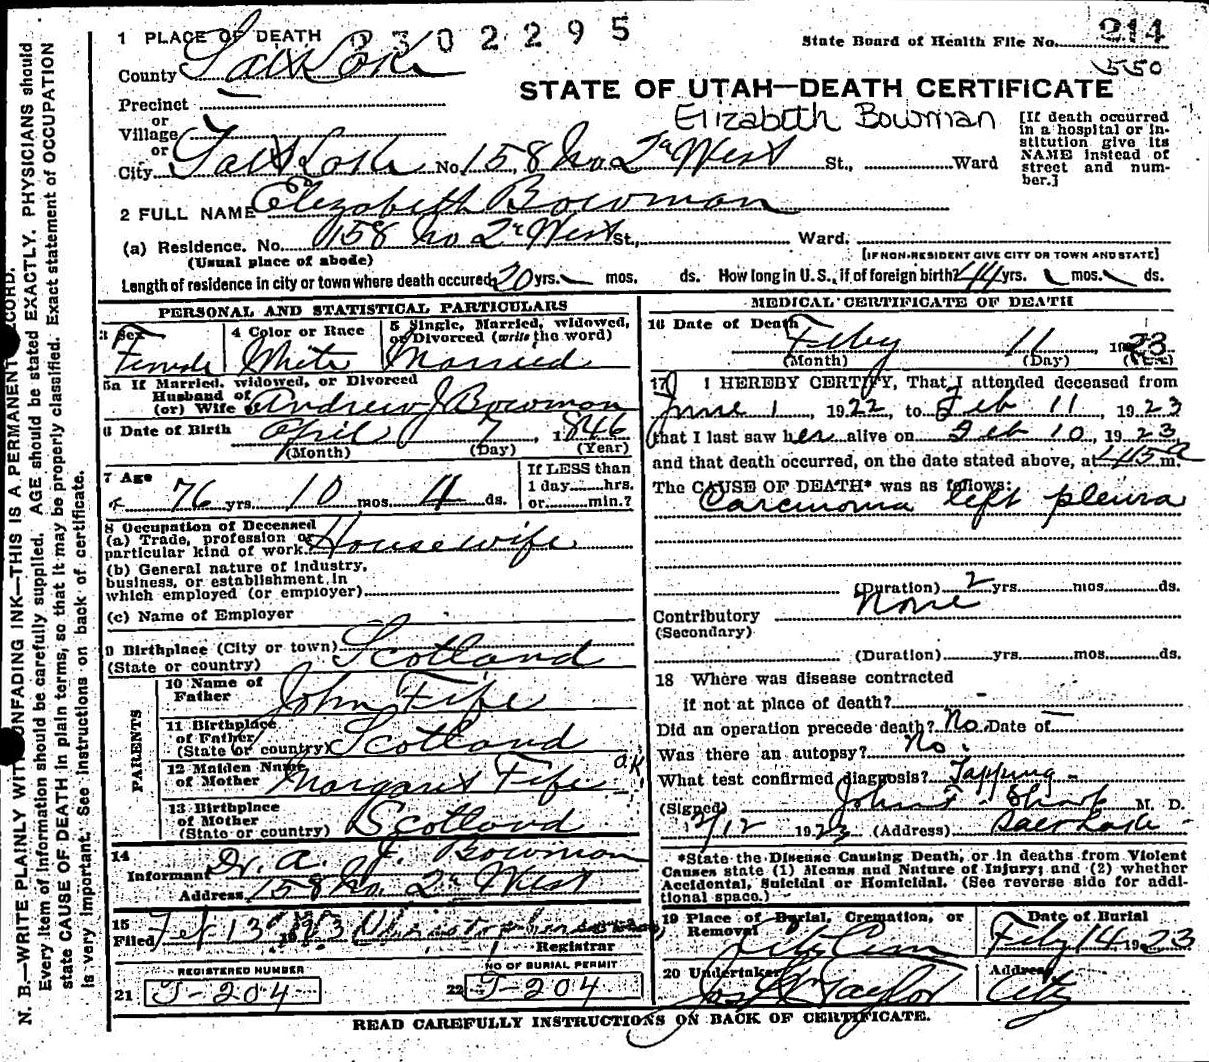 N. B.—WRITE PLAINLY WITH UNFADING INK—THIS IS A PERMANENT RECORD.
Every item of information should be carefully supplied. AGE should be stated EXACTLY. PHYSICIANS should
state CAUSE OF DEATH in plain terms, so that it may be properly classified. Exact statement of OCCUPATION
is very important. See instructions on back of certificate.
1 PLACE OF DEATH 2302295
State Board of Health File No. 214
550
County Salt Lake
STATE OF UTAH—DEATH CERTIFICATE
Precinct
or
Village
or
Elizabeth Bowman
[If death occurred in a hospital or institution give its NAME instead of street and number.]
City Salt Lake No. 158 No 2d West St., Ward
2 FULL NAME Elizabeth Bowman
(a) Residence. No. 158 No 2d West St., Ward.
(Usual place of abode) [IF NON-RESIDENT GIVE CITY OR TOWN AND STATE]
Length of residence in city or town where death occured 20 yrs. mos. ds. How long in U.S., if of foreign birth? 44 yrs. mos. ds.
PERSONAL AND STATISTICAL PARTICULARS
3 Sex Female
4 Color or Race White
5 Single, Married, widowed, or Divorced (write the word) Married
5a If Married, widowed, or Divorced
Husband of
(or) Wife of Andrew J Bowman
6 Date of Birth April 7, 1846
(Month) (Day) (Year)
7 Age 76 yrs 10 mos 4 ds.
If LESS than
1 day hrs.
or min.?
8 Occupation of Deceased
(a) Trade, profession or
particular kind of work Housewife
(b) General nature of industry,
business, or establishment in
which employed (or employer)
(c) Name of Employer
9 Birthplace (City or town) Scotland
(State or country)
PARENTS
10 Name of Father John Fife
11 Birthplace of Father (State or country) Scotland
12 Maiden Name of Mother Margaret Fife O.K
13 Birthplace of Mother (State or country) Scotland
14
Informant Dr. A. J. Bowman
Address 158 No. 2d West
15
Filed Feb 13 1923
Registrar
REGISTERED NUMBER
21 J-204
NO OF BURIAL PERMIT
22 J-204
MEDICAL CERTIFICATE OF DEATH
16 Date of Death Feby 11 1923
(Month) (Day) (Year)
17 I HEREBY CERTIFY, That I attended deceased from
June 1, 1922, to Feb 11, 1923
that I last saw her alive on Feb 10, 1923
and that death occurred, on the date stated above, at 145 a m.
The CAUSE OF DEATH* was as follows:
Carcinoma left pleura
(Duration) 2 yrs. mos. ds.
Contributory None
(Secondary)
(Duration) yrs. mos. ds.
18 Where was disease contracted
if not at place of death? -
Did an operation precede death? No Date of —
Was there an autopsy? No.
What test confirmed diagnosis? Tapping -
(Signed) John F. Sharp M. D.
2/12 1923 (Address) Salt Lake
*State the Disease Causing Death, or in deaths from Violent
Causes state (1) Means and Nature of Injury; and (2) whether
Accidental, Suicidal or Homicidal. (See reverse side for addi-
tional space.)
19 Place of Burial, Cremation, or Removal City Cem
Date of Burial Feby 14 1923
20 Undertaker Jos Taylor
Address City
READ CAREFULLY INSTRUCTIONS ON BACK OF CERTIFICATE.